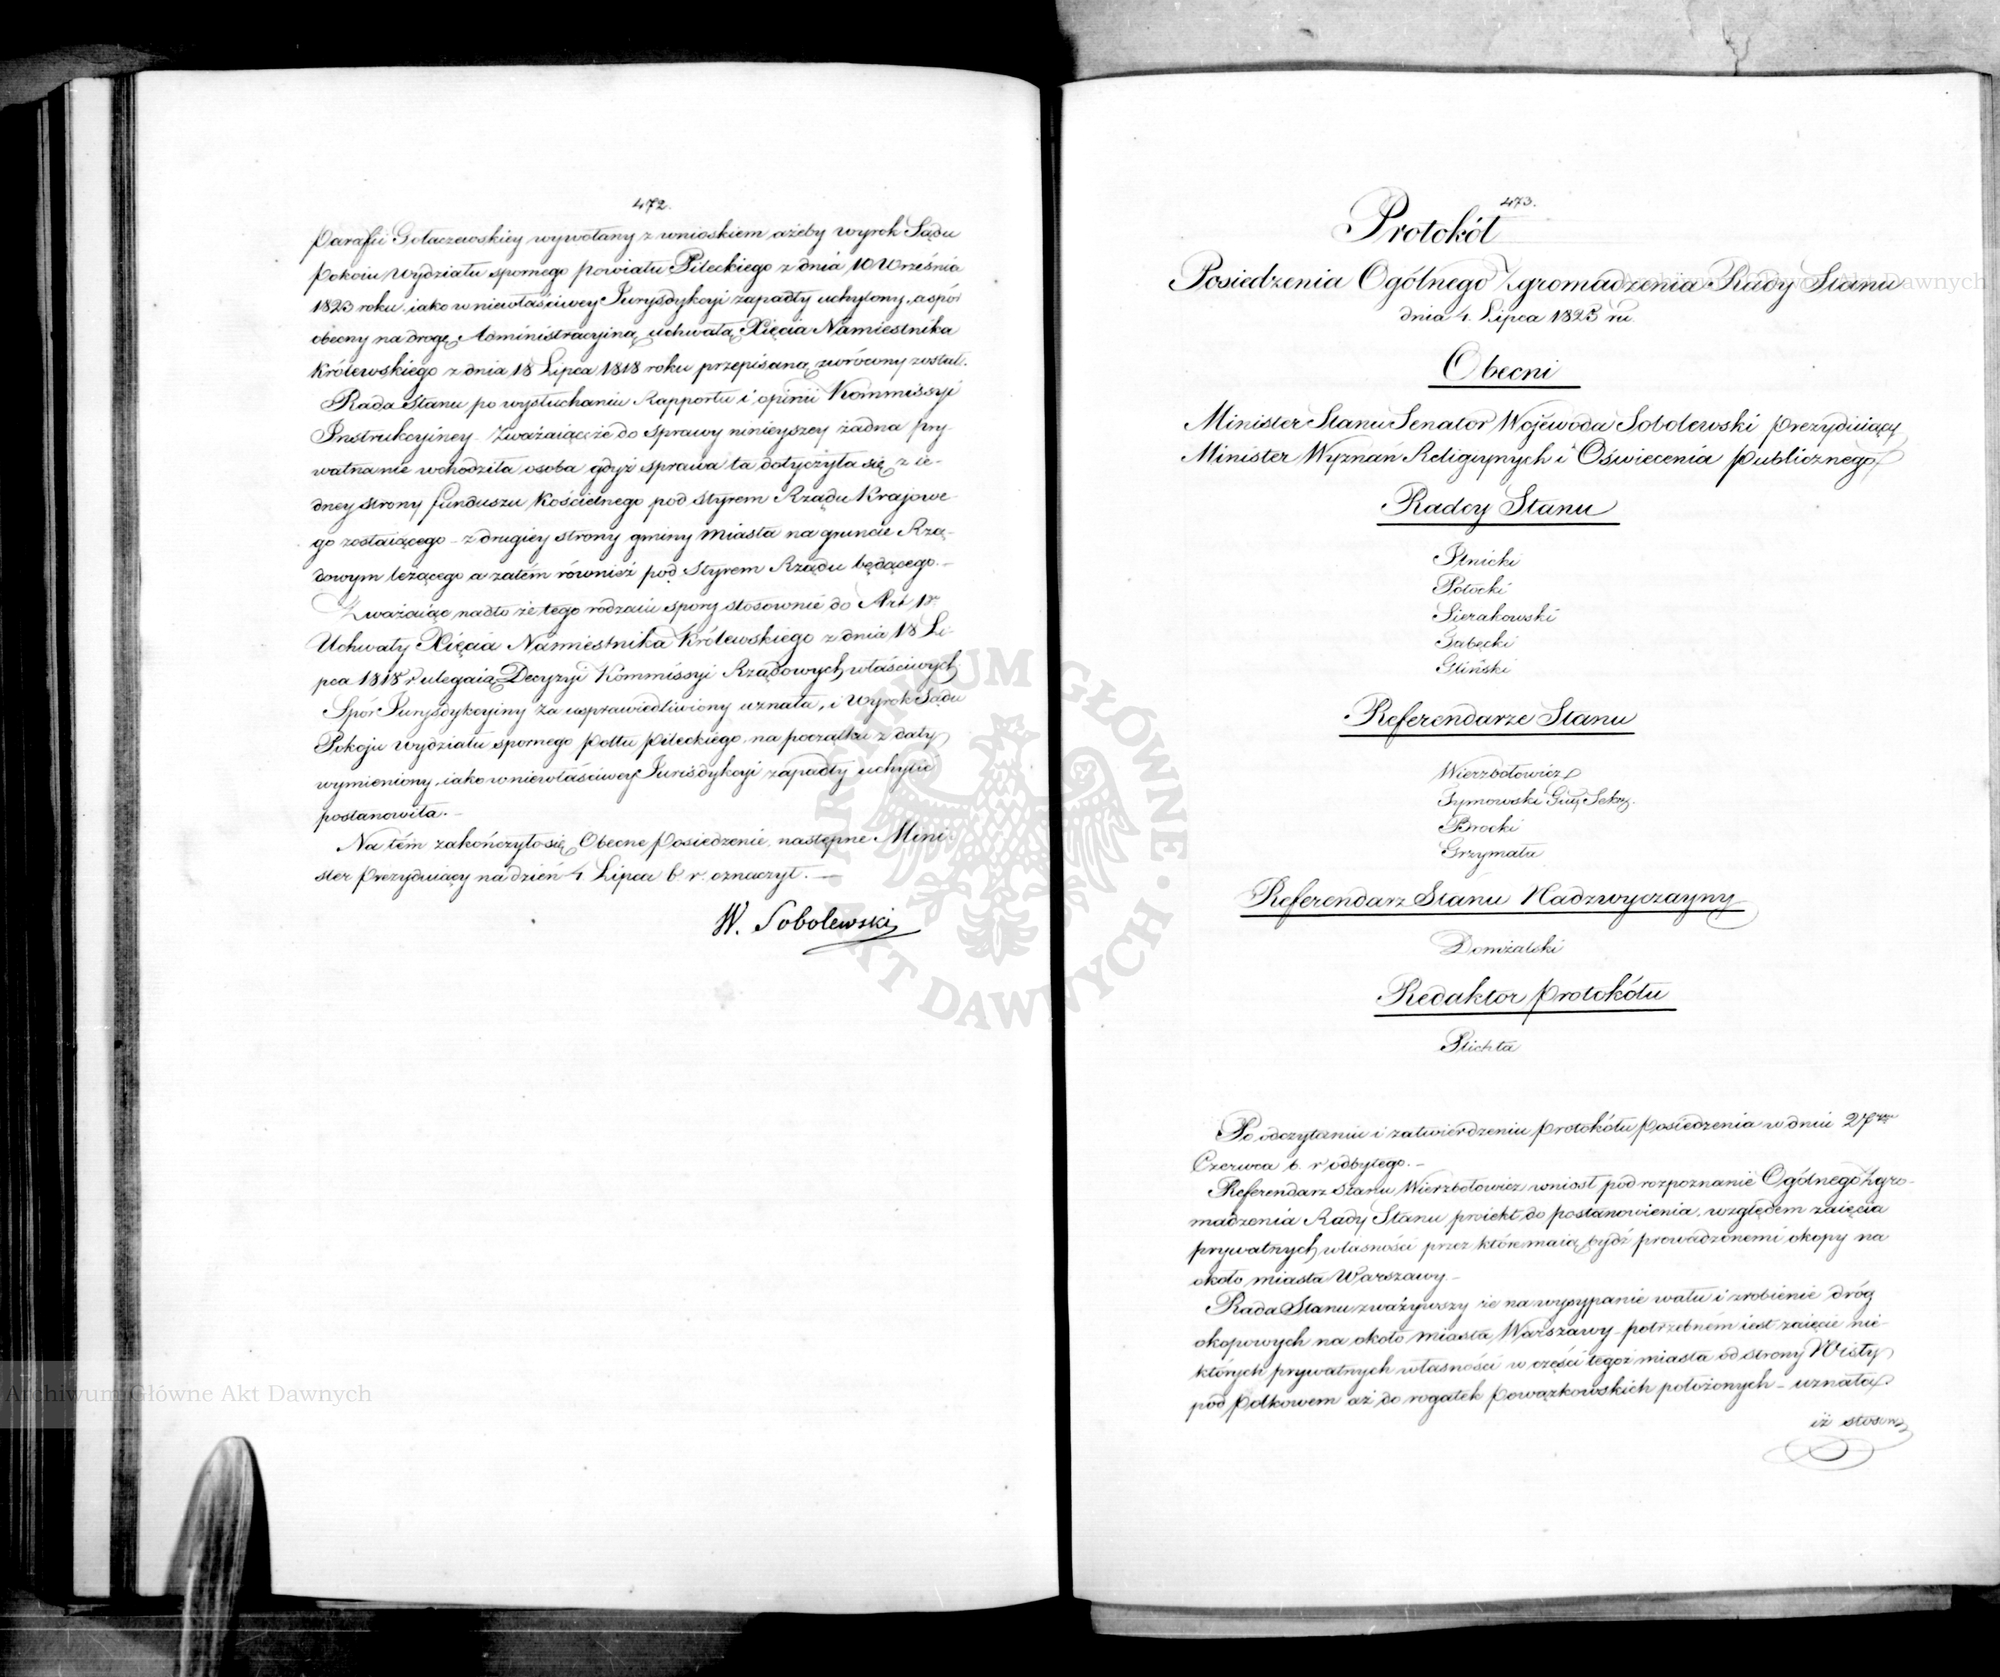 472.
Parafii Gołaczewskiey wywołany z wnioskiem ażeby wyrok Sądu
Pokoiu Wydziału spornego powiatu Pileckiego z dnia 10 Września
1823 roku, iako w niewłaściwey Jurysdykcyi zapadły uchylony, a spór
obecny na drogę Administracyiną uchwałą Xięcia Namiestnika
Królewskiego z dnia 18 Lipca 1818 roku przepisaną zwrócony został.
Rada Stanu po wysłuchaniu Rapportu i opinii Kommissyi
Instrukcyiney. Zważaiąc że do sprawy ninieyszey żadna pry-
watna nie wchodziła osoba gdyż sprawa ta dotyczyła się z ie-
dney strony funduszu Kościelnego pod styrem Rządu Krajowe-
go zostaiącego – z drugiey strony gminy miasta na gruncie Rzą-
dowym leżącego a zatém również pod Styrem Rządu będącego. –
Zważaiąc nadto że tego rodzaiu spory stosownie do Art 1º
Uchwały Xięcia Namiestnika Królewskiego z dnia 18 Li-
pca 1818 r. ulegaią Decyzyi Kommissyi Rządowych właściwych
Spór Jurysdykcyiny za usprawiedliwiony uznała, i Wyrok Sądu
Pokoju wydziału spornego Pottu Pileckiego, na początku z daty
wymieniony, iako w niewłaściwey Jurisdykcyi zapadły uchylić
postanowiła. –
Na tém zakończyło się Obecne Posiedzenie, następne Mini-
ster Prezyduiący na dzień 4 Lipca b. r. oznaczył. –
W. Sobolewski
473.
Protokół
Posiedzenia Ogólnego Zgromadzenia Rady Stanu
dnia 4 Lipca 1825 ru.
Obecni
Minister Stanu Senator Wojewoda Sobolewski prezyduiący
Minister Wyznań Religiynych i Oświecenia Publicznego
Radcy Stanu
Potocki
Sierakowski
Gliński
Referendarze Stanu
Wierzbołowicz
Tymowski Guy Sekrz.
Brocki
Grzymała
Referendarz Stanu Nadzwyczayny
Domżalski
Redaktor Protokółu
Plichta
Po odczytaniu i zatwierdzeniu Protokółu Posiedzenia w dniu 27
Czerwca b. r. odbytego. –
Referendarz Stanu Wierzbołowicz wniosł pod rozpoznanie Ogólnego Zgro-
madzenia Rady Stanu proiekt do postanowienia, względem zaięcia
prywatnych własności przez które maią bydź prowadzonemi okopy na
około miasta Warszawy –
Rada Stanu zważywszy że na wysypanie wału i zrobienie dróg
okopowych na około miasta Warszawy – potrzebnem iest zaięcie nie-
których prywatnych własności w części tegoż miasta od strony Wisły
pod Polkowem aż do rogatek Powązkowskich położonych – uznała
iż stosow
Archiwum Główne Akt Dawnych
Archiwum Główne Akt Dawnych
ARCHIWUM GŁÓWNE AKT DAWNYCH